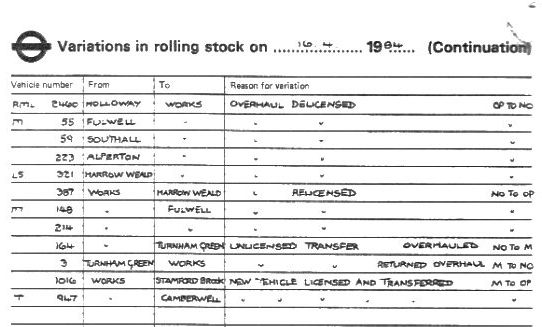 Variations in rolling stock on ......16.4...... 1984.... (Continuation)
Vehicle number From To Reason for variation
RML 2460 HOLLOWAY WORKS OVERHAUL DELICENSED OP TO NO
M 55 FULWELL " " " "
59 SOUTHALL " " " "
223 ALPERTON " " " "
LS 321 HARROW WEALD " " " "
387 WORKS HARROW WEALD " RELICENSED NO TO OP
M 148 " FULWELL " " "
214 " " " " "
164 " TURNHAM GREEN UNLICENSED TRANSFER OVERHAULED NO TO M
3 TURNHAM GREEN WORKS " " RETURNED OVERHAUL M TO NO
1016 WORKS STAMFORD BROOK NEW VEHICLE LICENSED AND TRANSFERRED M TO OP
T 947 " CAMBERWELL " " " " " "